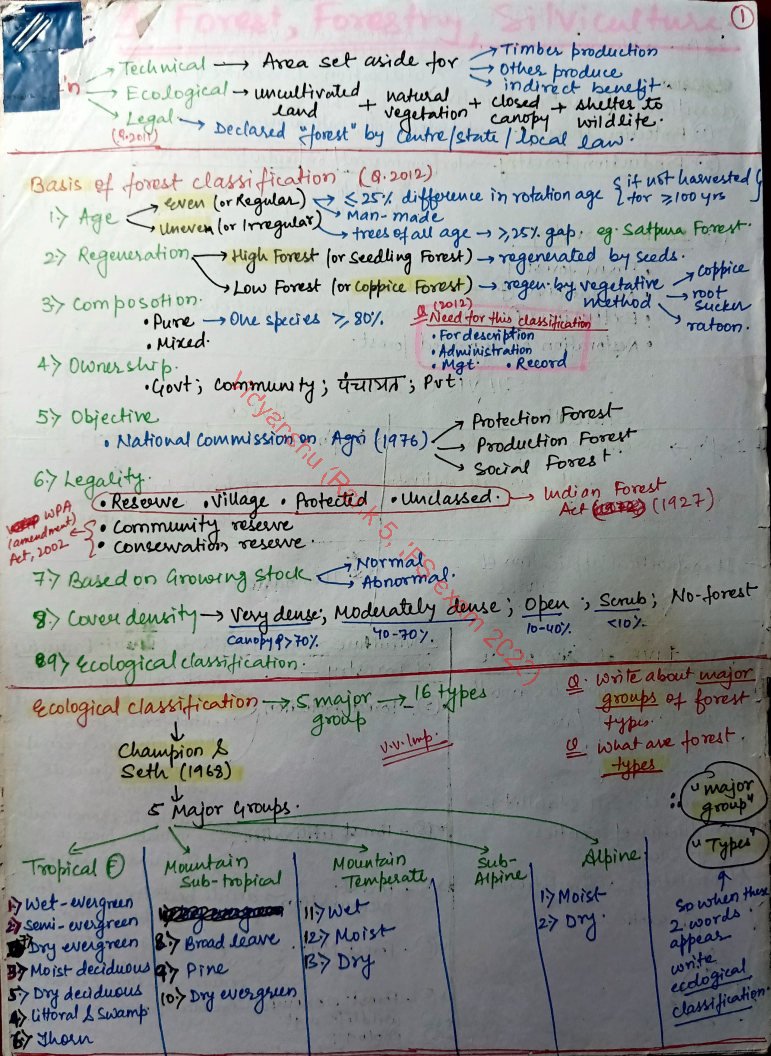 1. Forest, Forestry, Silviculture
1
Technical → Area set aside for → Timber production
→ Other produce
→ indirect benefit.
Ecological → uncultivated land + natural vegetation + closed canopy + shelter to wildlife.
Legal → Declared "forest" by centre/state/local law.
(Q.2011)
Basis of forest classification (Q.2012)
1) Age
Even (or Regular) → ≤25% difference in rotation age {if not harvested for ≥100 yrs}
→ Man-made
Uneven (or Irregular) → trees of all age → ≥25% gap. eg. Satpura Forest.
2) Regeneration → High Forest (or Seedling Forest) → regenerated by seeds.
Low Forest (or coppice Forest) → regen. by vegetative method → coppice
→ root sucker
→ ratoon.
3) Composotion.
• Pure → One species ≥80%.
• Mixed.
Q (2012) Need for this classification
• For description
• Administration
• Mgt. • Record
4) Ownership.
• Govt; Community; पंचायत; Pvt.
5) Objective
• National Commission on Agri (1976) → Protection Forest
→ Production Forest
→ Social Forest.
6) Legality.
• Reserve • Village • Protected • Unclassed. → Indian Forest Act (1927)
• Community reserve
• Conservation reserve.
WPA (amendment) Act, 2002
7) Based on Growing Stock → Normal
→ Abnormal.
8) Cover density → Very dense; Moderately dense; Open; Scrub; No-forest
canopy >70%. 40-70%. 10-40%. <10%.
9) Ecological classification.
Vidyanshu (Rank 5, IFS exam 2022)
Ecological classification → 5 major group → 16 types
v.v. Imp.
Q. Write about major groups of forest types.
Q. What are forest types
Champion & Seth (1968)
5 Major Groups.
∴ "major group"
"Types"
So when these 2 words appears write ecological classification.
Tropical F
1) Wet-evergreen
2) Semi-evergreen
7) Dry evergreen
3) Moist deciduous
5) Dry deciduous
4) Littoral & Swamp
6) Thorn
Mountain Sub-tropical
8) Broad leave
9) Pine
10) Dry evergreen
Mountain Temperate
11) Wet
12) Moist
13) Dry
Sub-Alpine
Alpine
1) Moist
2) Dry